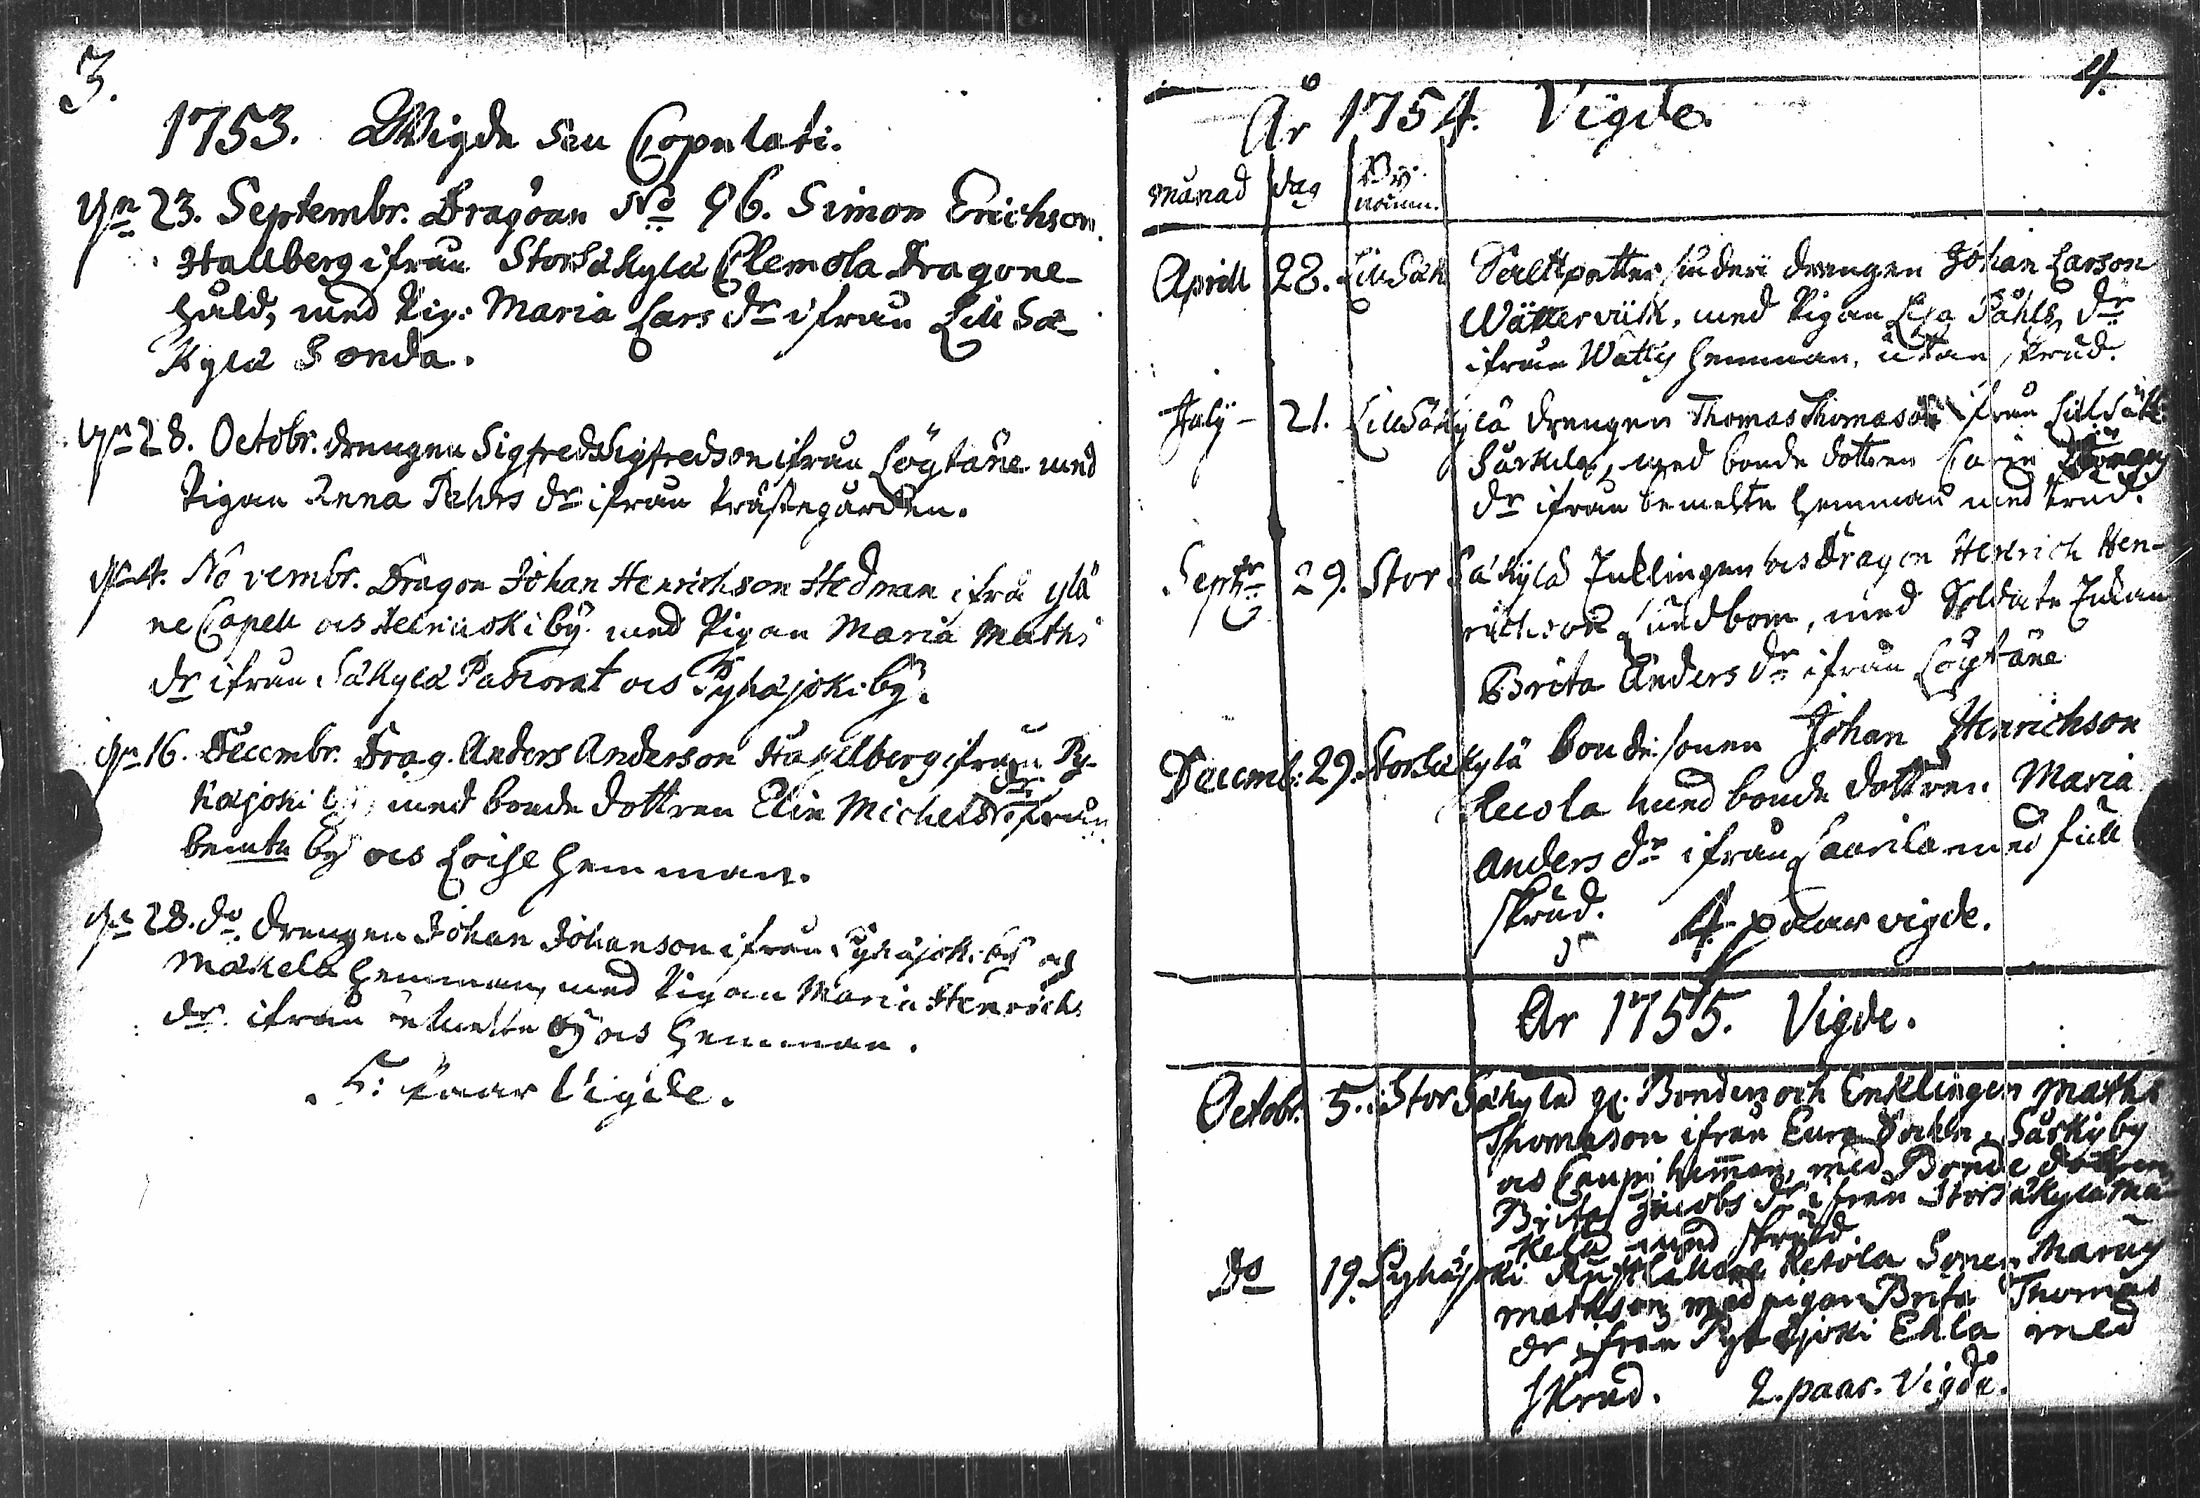 3.
1753. Wigde seu Copulati.
23. Septembr. Dragoun No 96. Simon Erichson
Hallberg ifrån Storsäkylä Clemola Dragone
håld, med Pig. Maria Lars dr ifrån Lill Sä-
kylä Sonda.
28. Octobr. drengen Sigfred Sigfredson ifrån Löytäne med
Pigan Anna Pehrs dr ifrån Prästegården.
4. Novembr. Dragon Johan Henrichson Hedman ifrå Ylä
ne Capell och Heinioski by med Pigan Maria Maths
dr ifrån Säkylä Pastorat och Pyhäjoki by.
16. Decembr. Drag. Anders Anderson Hasselberg ifrån Py-
häjoki by, med bonde dottren Elin Michels dr ifrån
bemte by och Loise hemman.
28. do drengen Johan Johanson ifrån Pyhäjoki by och
Mäkelä hemman, med Pigan Maria Henrichs
dr ifrån bemelte by och hemman.
5: Paar Vigde.
4.
År 1754. Vigde.
Månad dag By namn.
Aprill 28. LillSäk Salttpetter siuderi drengen Johan Larson
Wätterviik, med Pigan Lisa Påhls dr
ifrån Wätty hemman, utan skrud.
July 21. LillSäkylä drengen Thomas Thomason ifrån LillSäk
med bonde dottren Carin
dr ifrån bemelte hemman med skrud.
Septbr 29. Stor Säkylä Enklingen och Dragon Henrich Hen-
richson Sundbom, med Soldate Enkan
Brita Anders dr ifrån Löytäne
Decemb: 29. StorSäkylä bonde sonen Johan Henrichson
med bonde dottren Maria
Anders dr ifrån Laurila med full
skrud. 4. paar vigde.
År 1755. Vigde.
Octobr. 5. StorSäkylä Bonden och Enklingen Maths
Thomason ifrån Eura Sokn, by
och Caupi hemman, med Bonde dottren
Brita Jacobs dr ifrån Storsäkylä Mä-
kelä med skrud
do 19. Pyhäjoki Rusthållare Sonen
Mathson med pigan Brita Thomas
dr ifrån Pyhäjoki Eskola med
skrud. 2. paar. Vigde.